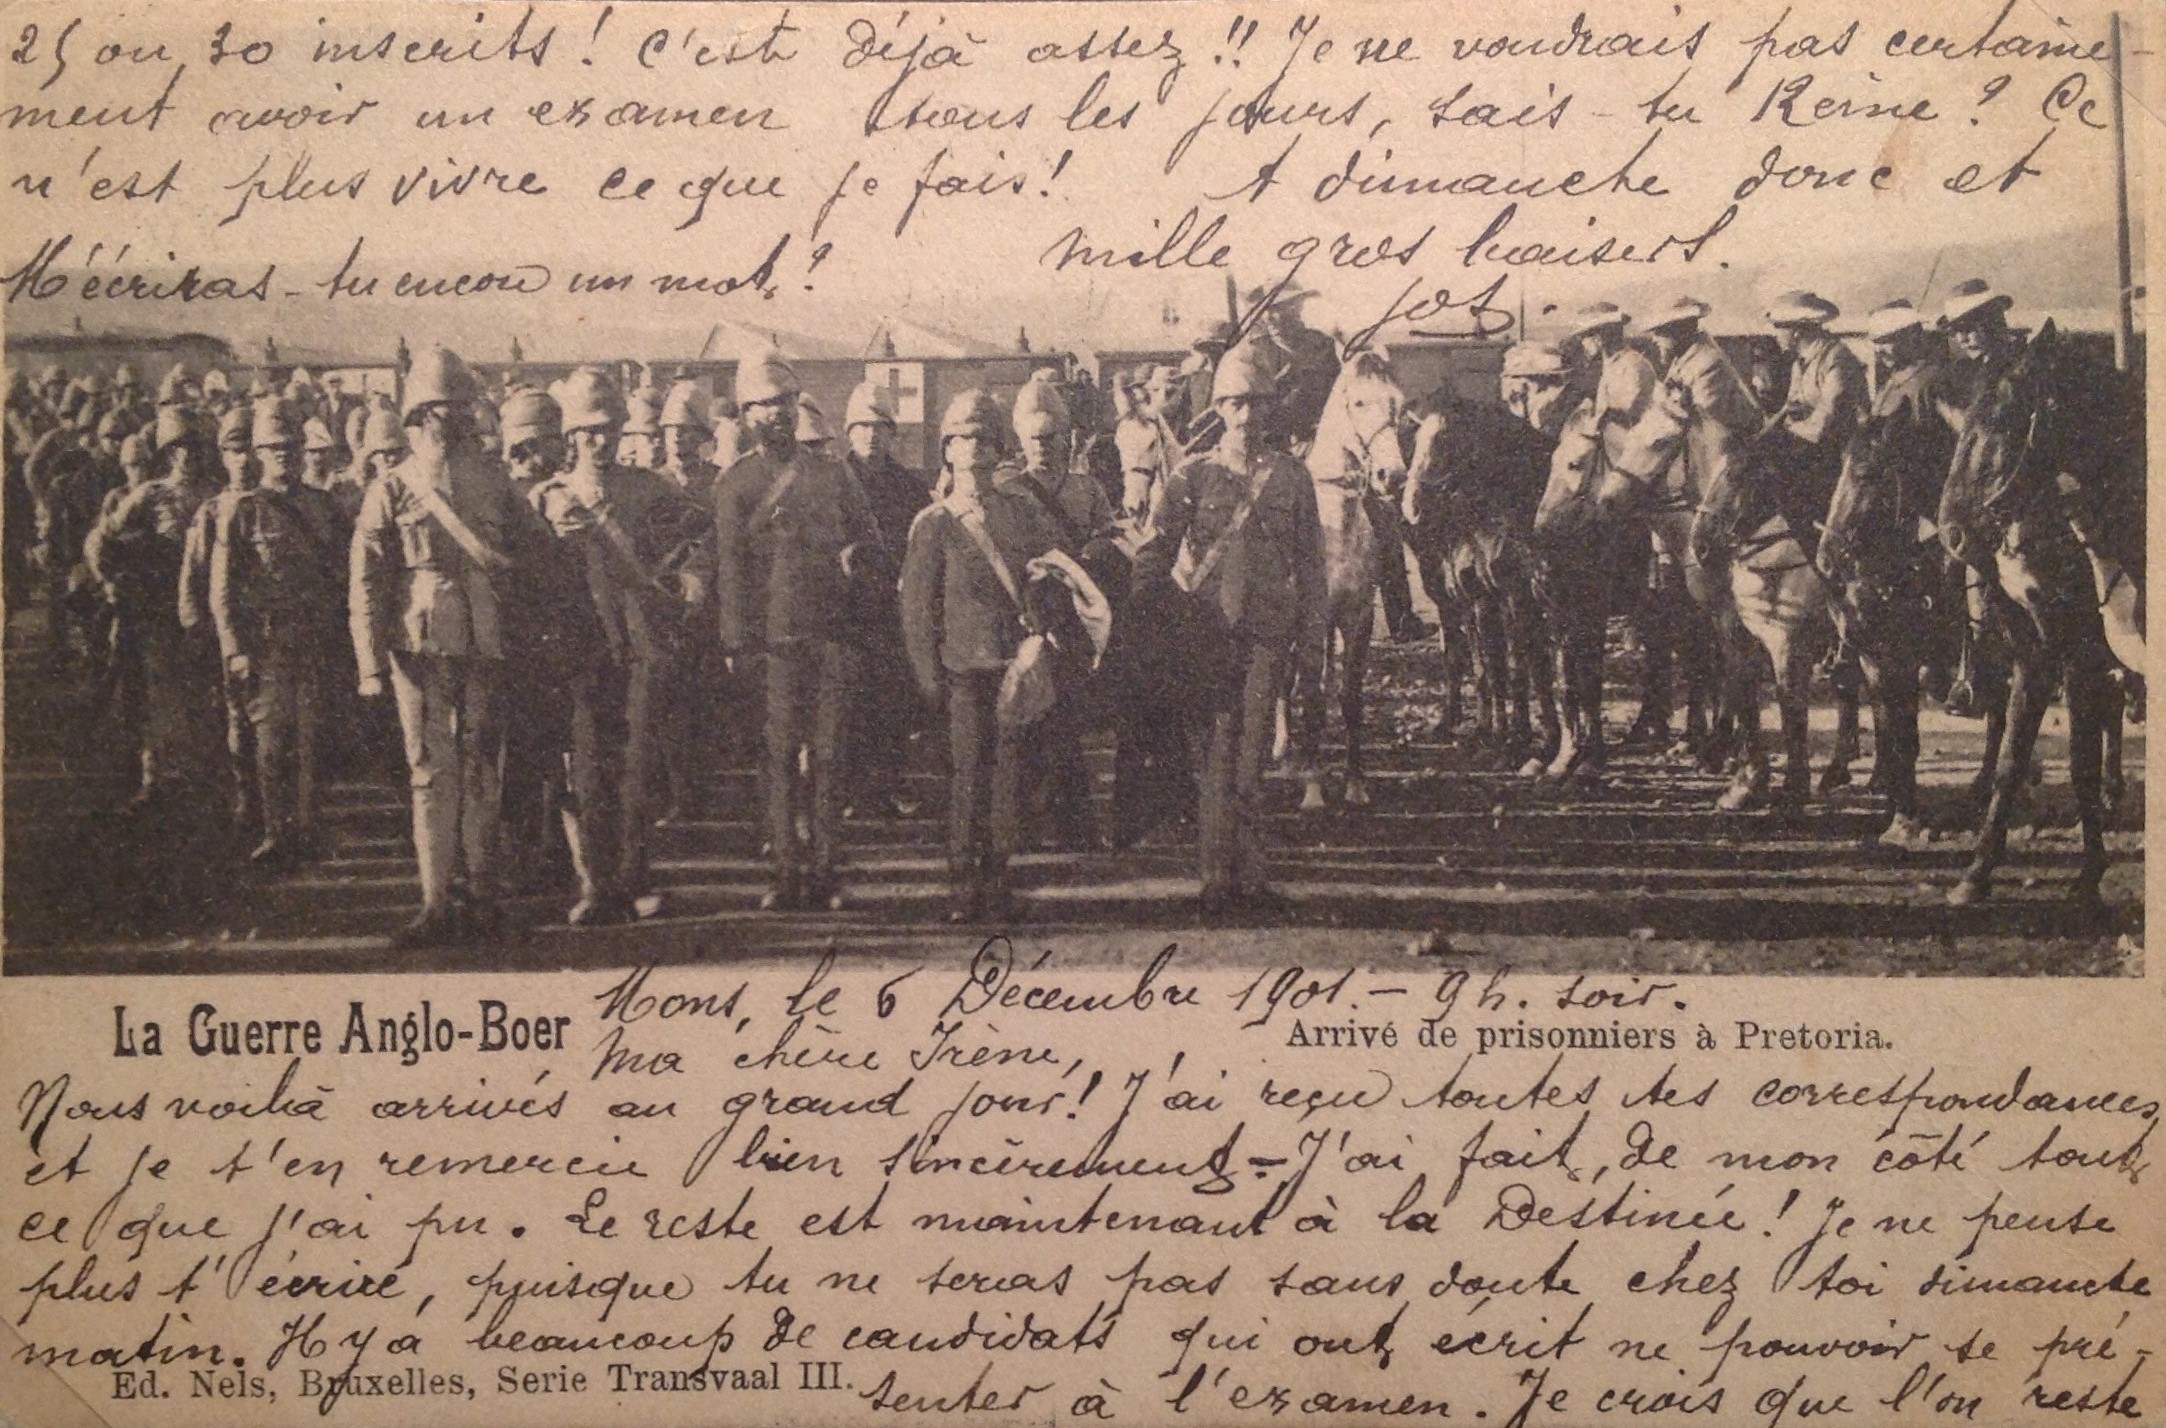 25 ou 30 inscrits ! C'est déjà assez !! Je ne voudrais pas certaine-
ment avoir un examen tous les jours, sais-tu Reine ? Ce
n'est plus vivre ce que je fais ! A dimanche donc et
mille gros baisers.
M'écriras-tu encore un mot ?
Jos.
Mons, le 6 Décembre 1901. - 9 h. soir.
La Guerre Anglo-Boer
Arrivé de prisonniers à Pretoria.
Ma chère Irène,
Nous voilà arrivés au grand jour ! J'ai reçu toutes tes correspondances,
et je t'en remercie bien sincèrement = J'ai fait, de mon côté tout
ce que j'ai pu. Le reste est maintenant à la Destinée ! Je ne pense
plus t'écrire, puisque tu ne seras pas sans doute chez toi dimanche
matin. Il y a beaucoup de candidats qui ont écrit ne pouvoir se pré-
Ed. Nels, Bruxelles, Serie Transvaal III.
senter à l'examen. Je crois que l'on reste